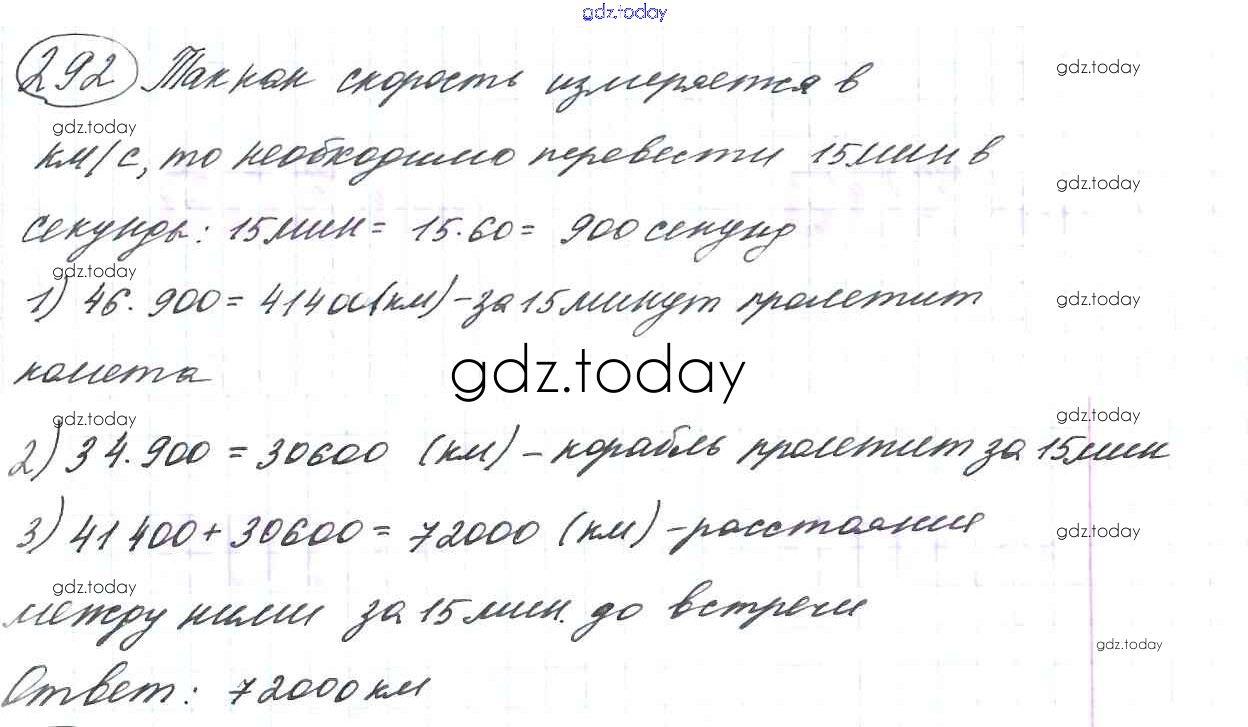 gdz.today
292 Так как скорость измеряется в
gdz.today
gdz.today
км/с, то необходимо перевести 15мин в
gdz.today
секунды: 15мин = 15·60 = 900 секунд
gdz.today
1) 46·900 = 41400(км) - за 15 минут пролетит
gdz.today
комета
gdz.today
gdz.today
gdz.today
2) 34·900 = 30600 (км) - корабль пролетит за 15мин
3) 41400 + 30600 = 72000 (км) - расстояние
gdz.today
gdz.today
между ними за 15мин. до встречи
gdz.today
Ответ: 72000км